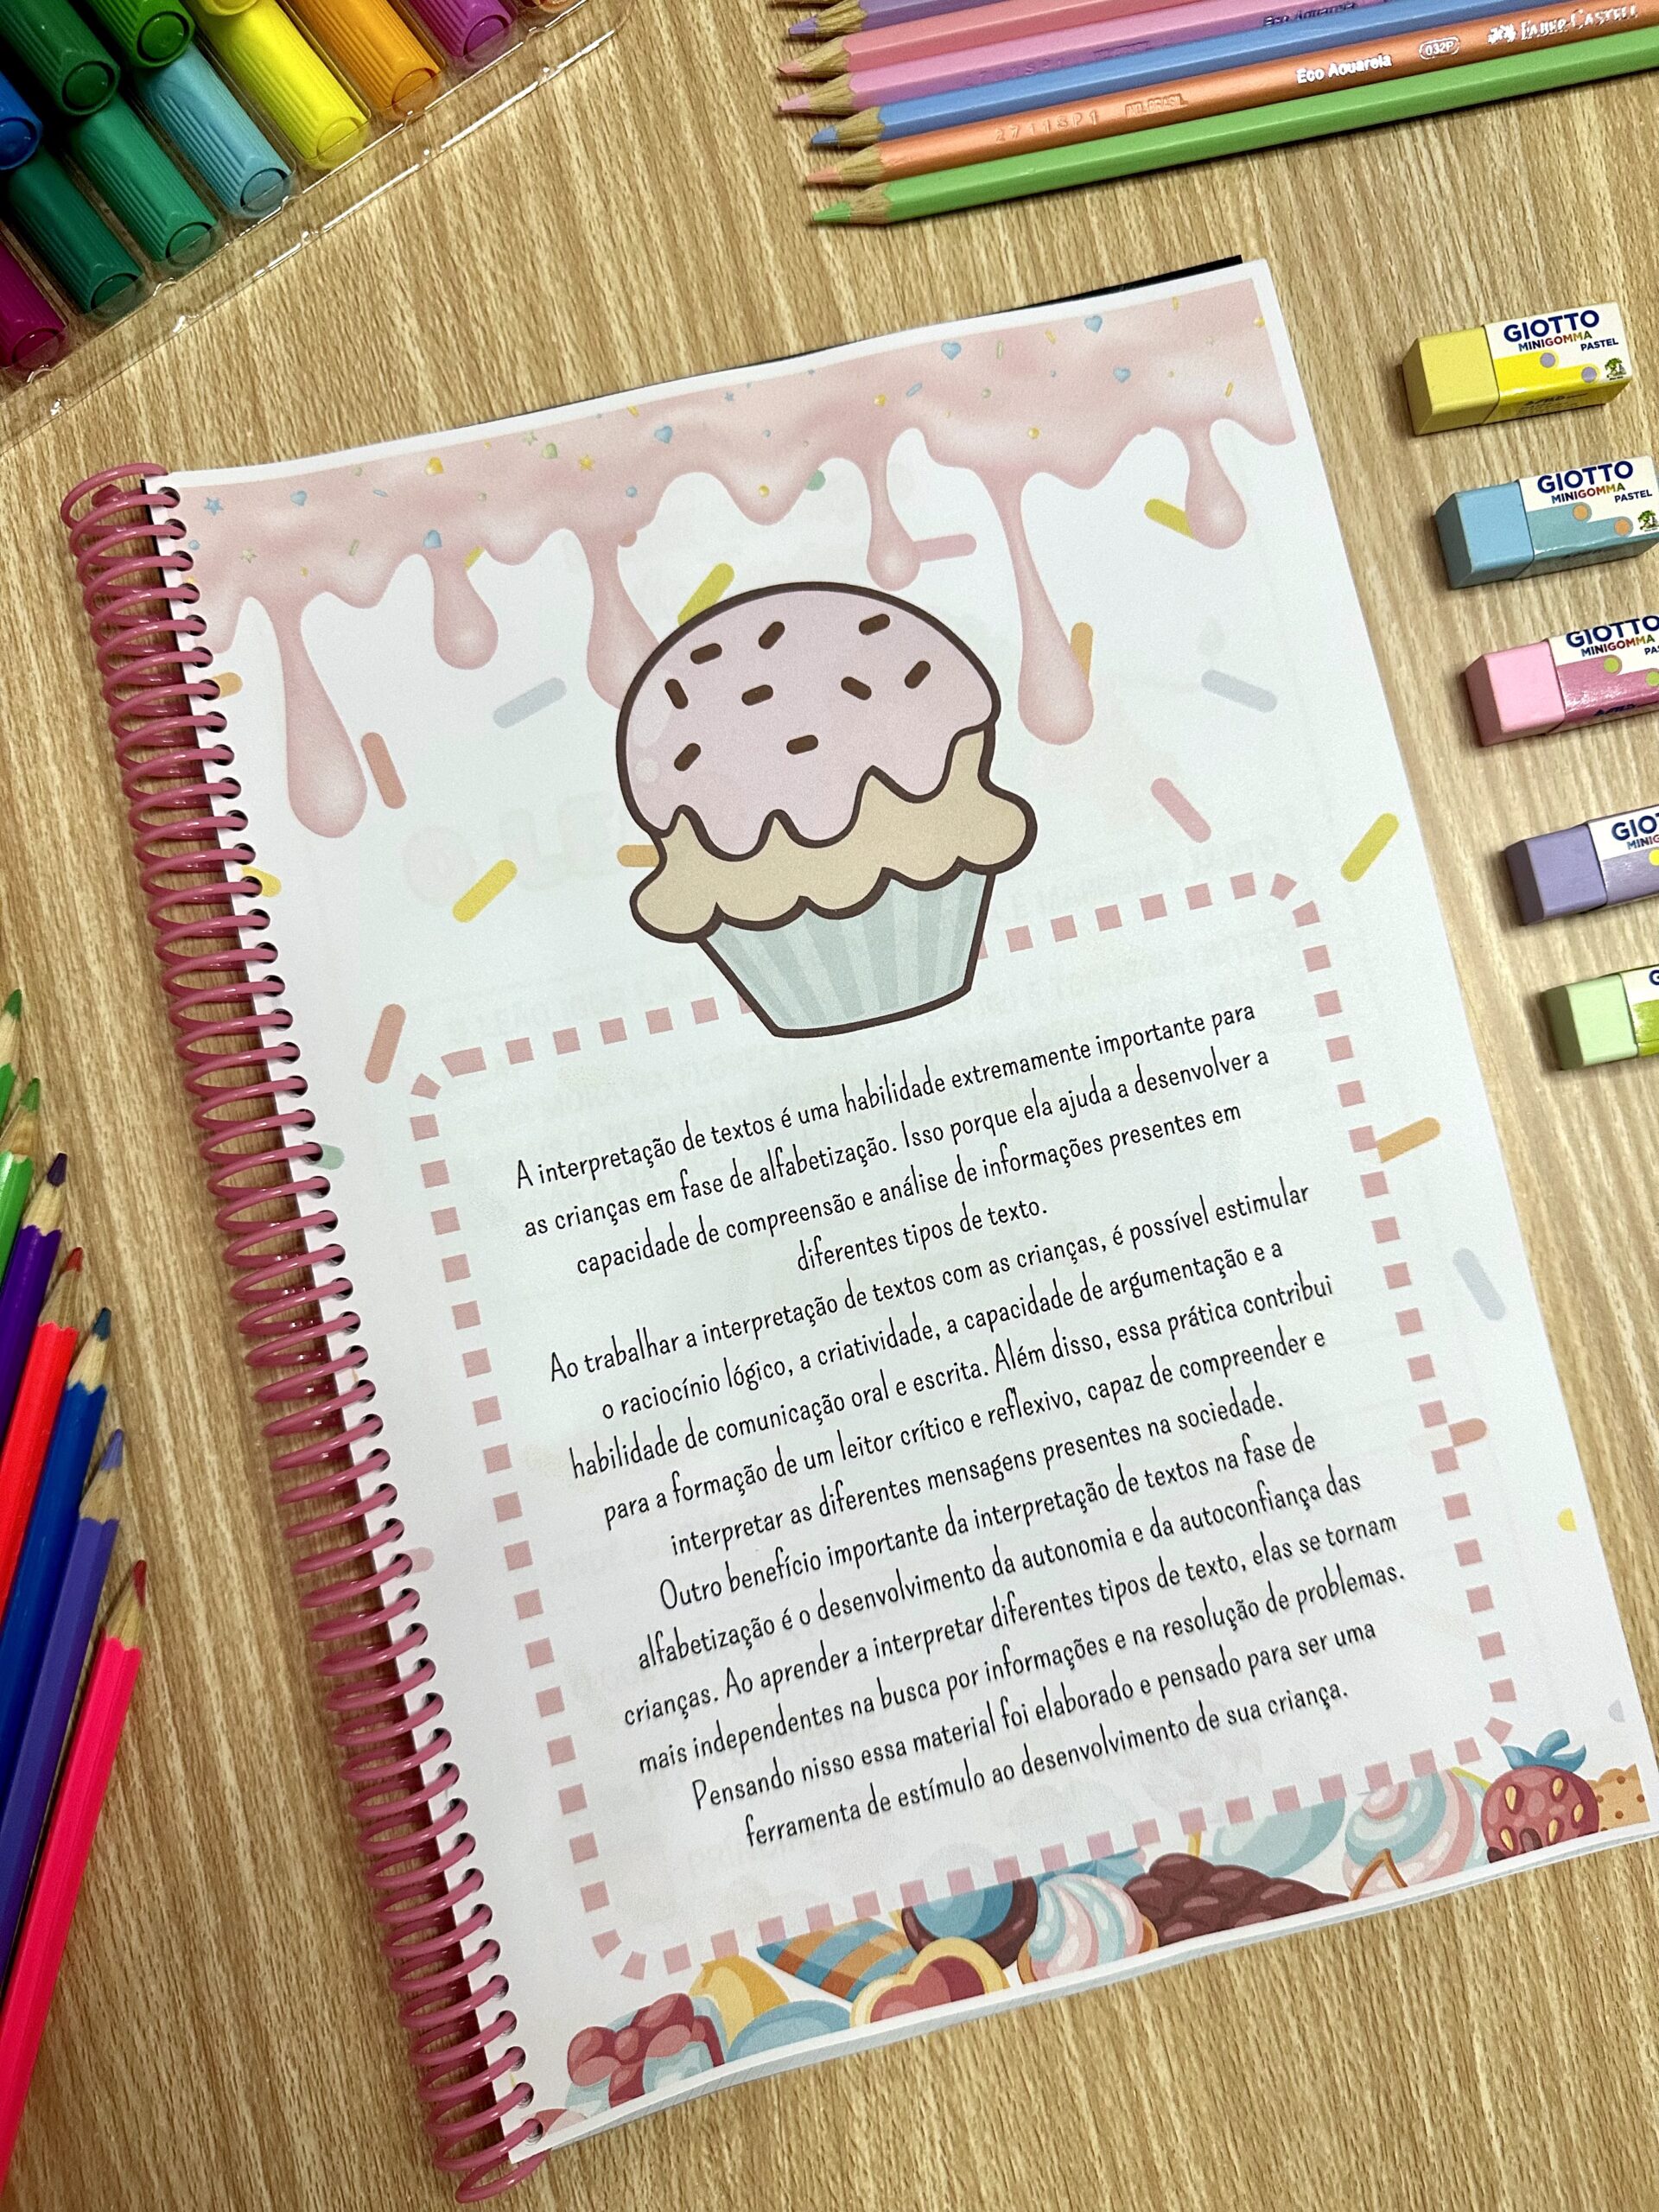 Eco Aquarela
Eco Aquarela 032P FABER-CASTELL
2711SP1
GIOTTO
MINIGOMMA
PASTEL
GIOTTO
MINIGOMMA
PASTEL
GIOTTO
MINIGOMMA
A interpretação de textos é uma habilidade extremamente importante para
as crianças em fase de alfabetização. Isso porque ela ajuda a desenvolver a
capacidade de compreensão e análise de informações presentes em
diferentes tipos de texto.
Ao trabalhar a interpretação de textos com as crianças, é possível estimular
o raciocínio lógico, a criatividade, a capacidade de argumentação e a
habilidade de comunicação oral e escrita. Além disso, essa prática contribui
para a formação de um leitor crítico e reflexivo, capaz de compreender e
interpretar as diferentes mensagens presentes na sociedade.
Outro benefício importante da interpretação de textos na fase de
alfabetização é o desenvolvimento da autonomia e da autoconfiança das
crianças. Ao aprender a interpretar diferentes tipos de texto, elas se tornam
mais independentes na busca por informações e na resolução de problemas.
Pensando nisso essa material foi elaborado e pensado para ser uma
ferramenta de estímulo ao desenvolvimento de sua criança.